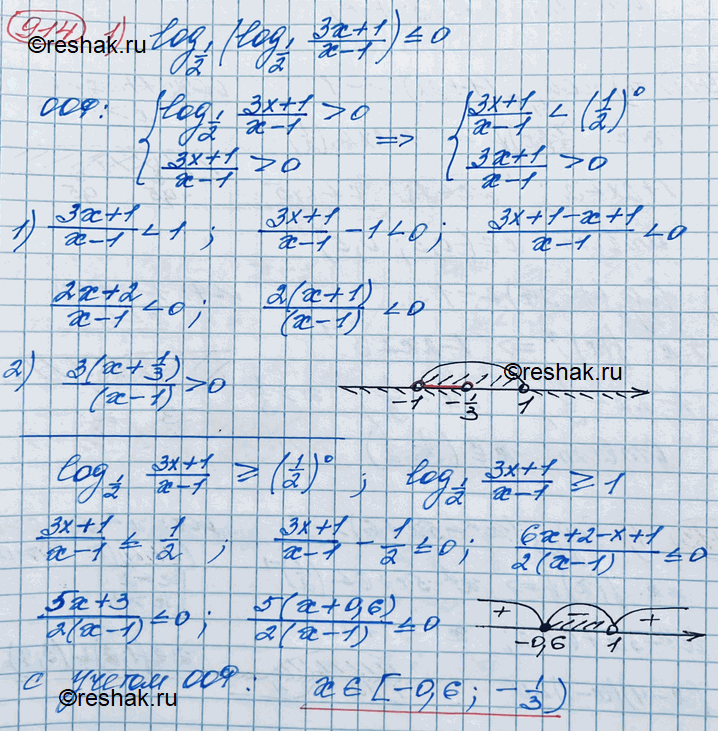 914 1) log_{1/2} (log_{1/2} (3x+1)/(x-1)) ≤ 0
©reshak.ru
ООФ: { log_{1/2} (3x+1)/(x-1) > 0 ; (3x+1)/(x-1) > 0 => { (3x+1)/(x-1) < (1/2)^0 ; (3x+1)/(x-1) > 0
©reshak.ru
1) (3x+1)/(x-1) < 1 ; (3x+1)/(x-1) - 1 < 0 ; (3x+1-x+1)/(x-1) < 0
(2x+2)/(x-1) < 0 ; 2(x+1)/(x-1) < 0
2) 3(x+1/3)/(x-1) > 0
©reshak.ru
-1 -1/3 1
©reshak.ru
log_{1/2} (3x+1)/(x-1) ≥ (1/2)^0 ; log_{1/2} (3x+1)/(x-1) ≥ 1
(3x+1)/(x-1) ≤ 1/2 ; (3x+1)/(x-1) - 1/2 ≤ 0 ; (6x+2-x+1)/(2(x-1)) ≤ 0
(5x+3)/(2(x-1)) ≤ 0 ; 5(x+0,6)/(2(x-1)) ≤ 0
+ - +
-0,6 1
с учетом ООФ: x ∈ [-0,6 ; -1/3)
©reshak.ru
©reshak.ru